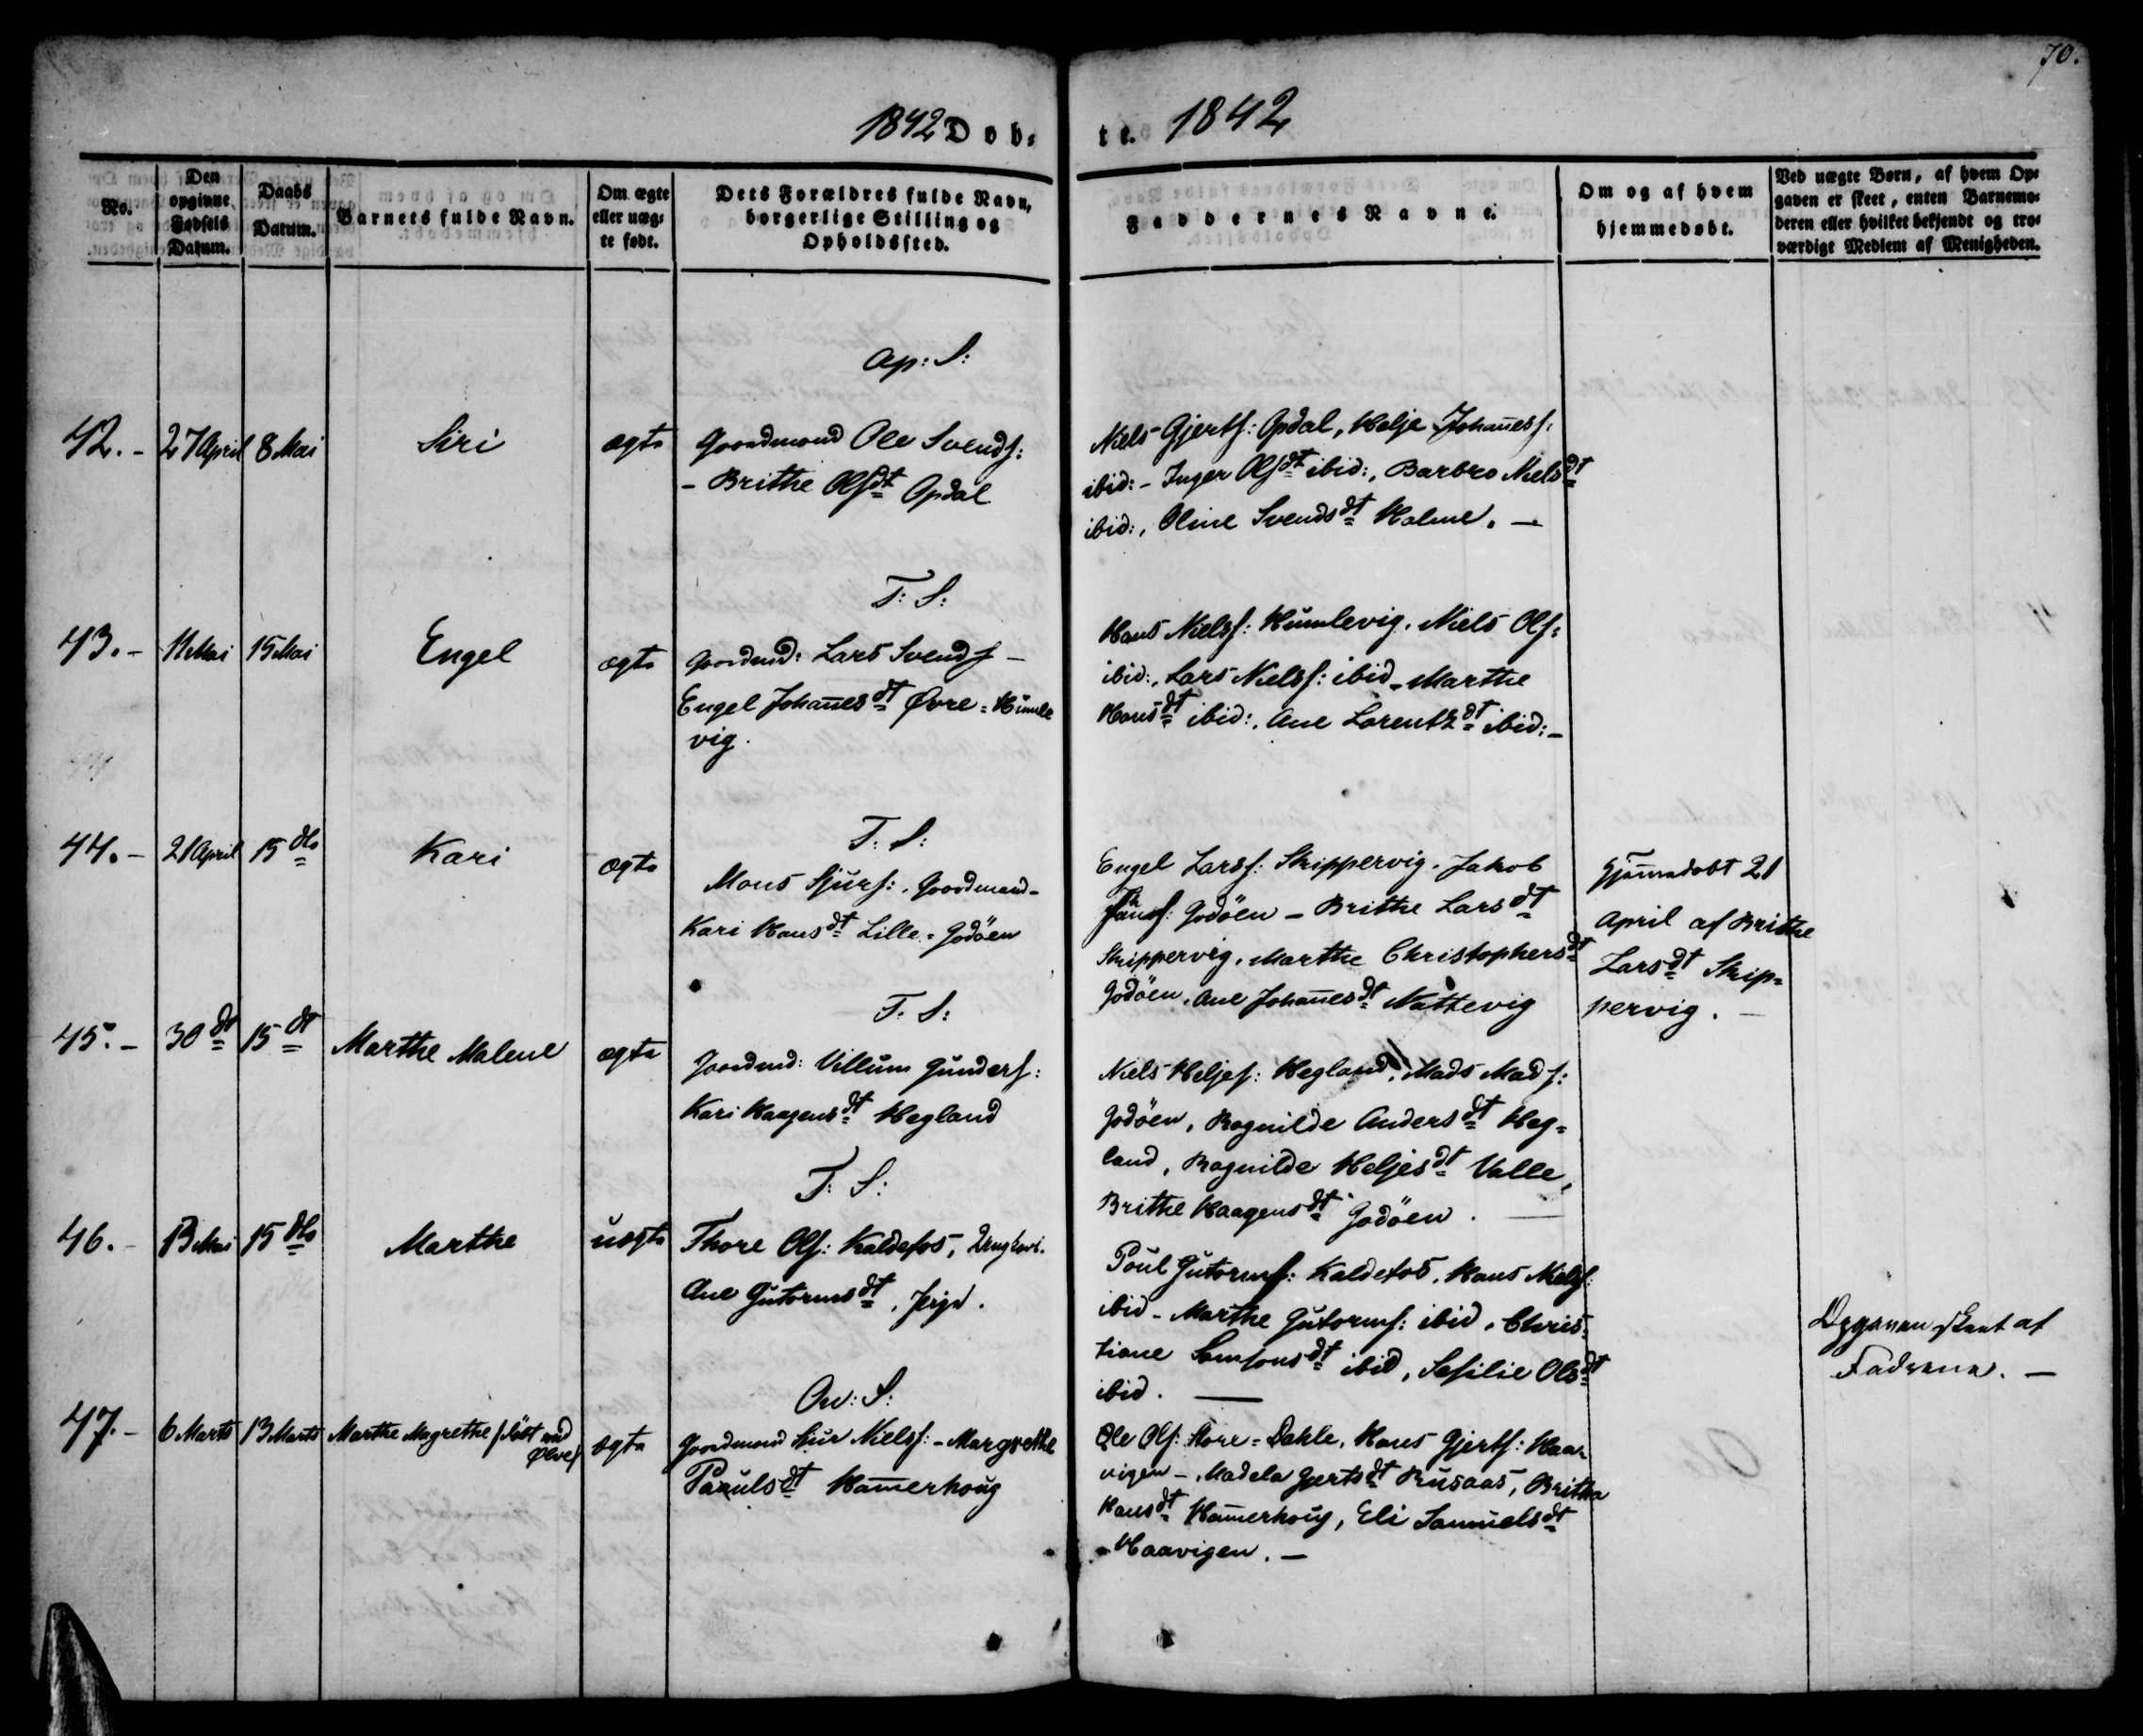 70.
1842 Døb-
te. 1842
No.
Den
opgivne
Fødsels
Datum.
Daabs
Datum.
Barnets fulde Navn.
Om ægte
eller uæg-
te født.
Dets Forældres fulde Navn,
borgerlige Stilling og
Opholdssted.
Faddernes Navne.
Om og af hvem
hjemmedøbt.
Ved uægte Børn, af hvem Op-
gaven er skeet, enten Barnemo-
deren eller hvilket bekjendt og tro-
værdigt Medlem af Menigheden.
Op: S:
42.- 27 April 8 Mai Siri ægte Gaardmand Ole Svends:
- Brithe Olsdt Opdal
Niels Gjerts: Opdal, Helje Johaness:
ibid: - Inger Olsdt ibid:, Barbro Nielsdt
ibid:, Oline Svendsdt Holme. -
T: S:
43.- 11 Mai 15 Mai Engel ægte Gaardmd: Lars Svends -
Engel Johanesdt Øvre-Humle
vig.
Hans Niels: Humlevig. Niels Ols:
ibid:, Lars Niels: ibid - Marthe
Hansdt ibid:, Ane Lorentzdt ibid: -
T: S:
44.- 21 April 15 dto Kari ægte Mons Sjurs:, Gaardmand -
Kari Hansdt Lille-Godöen
Engel Lars: Skippervig. Jakob
Godöen - Brithe Larsdt
Skippervig, Marthe Christophersdt
Godöen, Ane Johanesdt Nattevig
Hjemmedøbt 21
April af Brithe
Larsdt Skip-
pervig. -
T: S:
45.- 30 dt 15 dt Marthe Malene ægte Gaardmd: Villum Gunders:
Kari Haagensdt Hegland
Niels Heljes: Hegland, Mads Mads:
Godöen, Ragnilde Andersdt Heg-
land, Ragnilde Heljesdt Valle,
Brithe Haagensdt Godöen. -
T: S:
46.- 13 Mai 15 dto Marthe uægte Thore Ols: Kaldefos, Ungkarl.
Ane Gutormsdt, Pige.
Poul Gutorms: Kaldefos, Hans Niels:
ibid - Marthe Gutorms: ibid, Chris-
tiane Samsonsdt ibid, Sesilie Olsdt
ibid. -
Opgaven skeet af
Fadrene. -
Ov: S:
47.- 6 Marts 13 Marts Marthe Magrethe /født ved
Ølve/ ægte Gaardmand Sjur Niels: - Margrethe
Paaulsdt Hamerhoug
Ole Ols: Store-Dahle, Hans Gjerts: Haa-
vigen -, Madela Gjertsdt Rusaas, Britha
Hansdt Hamerhoug, Eli Samuelsdt
Haavigen. -